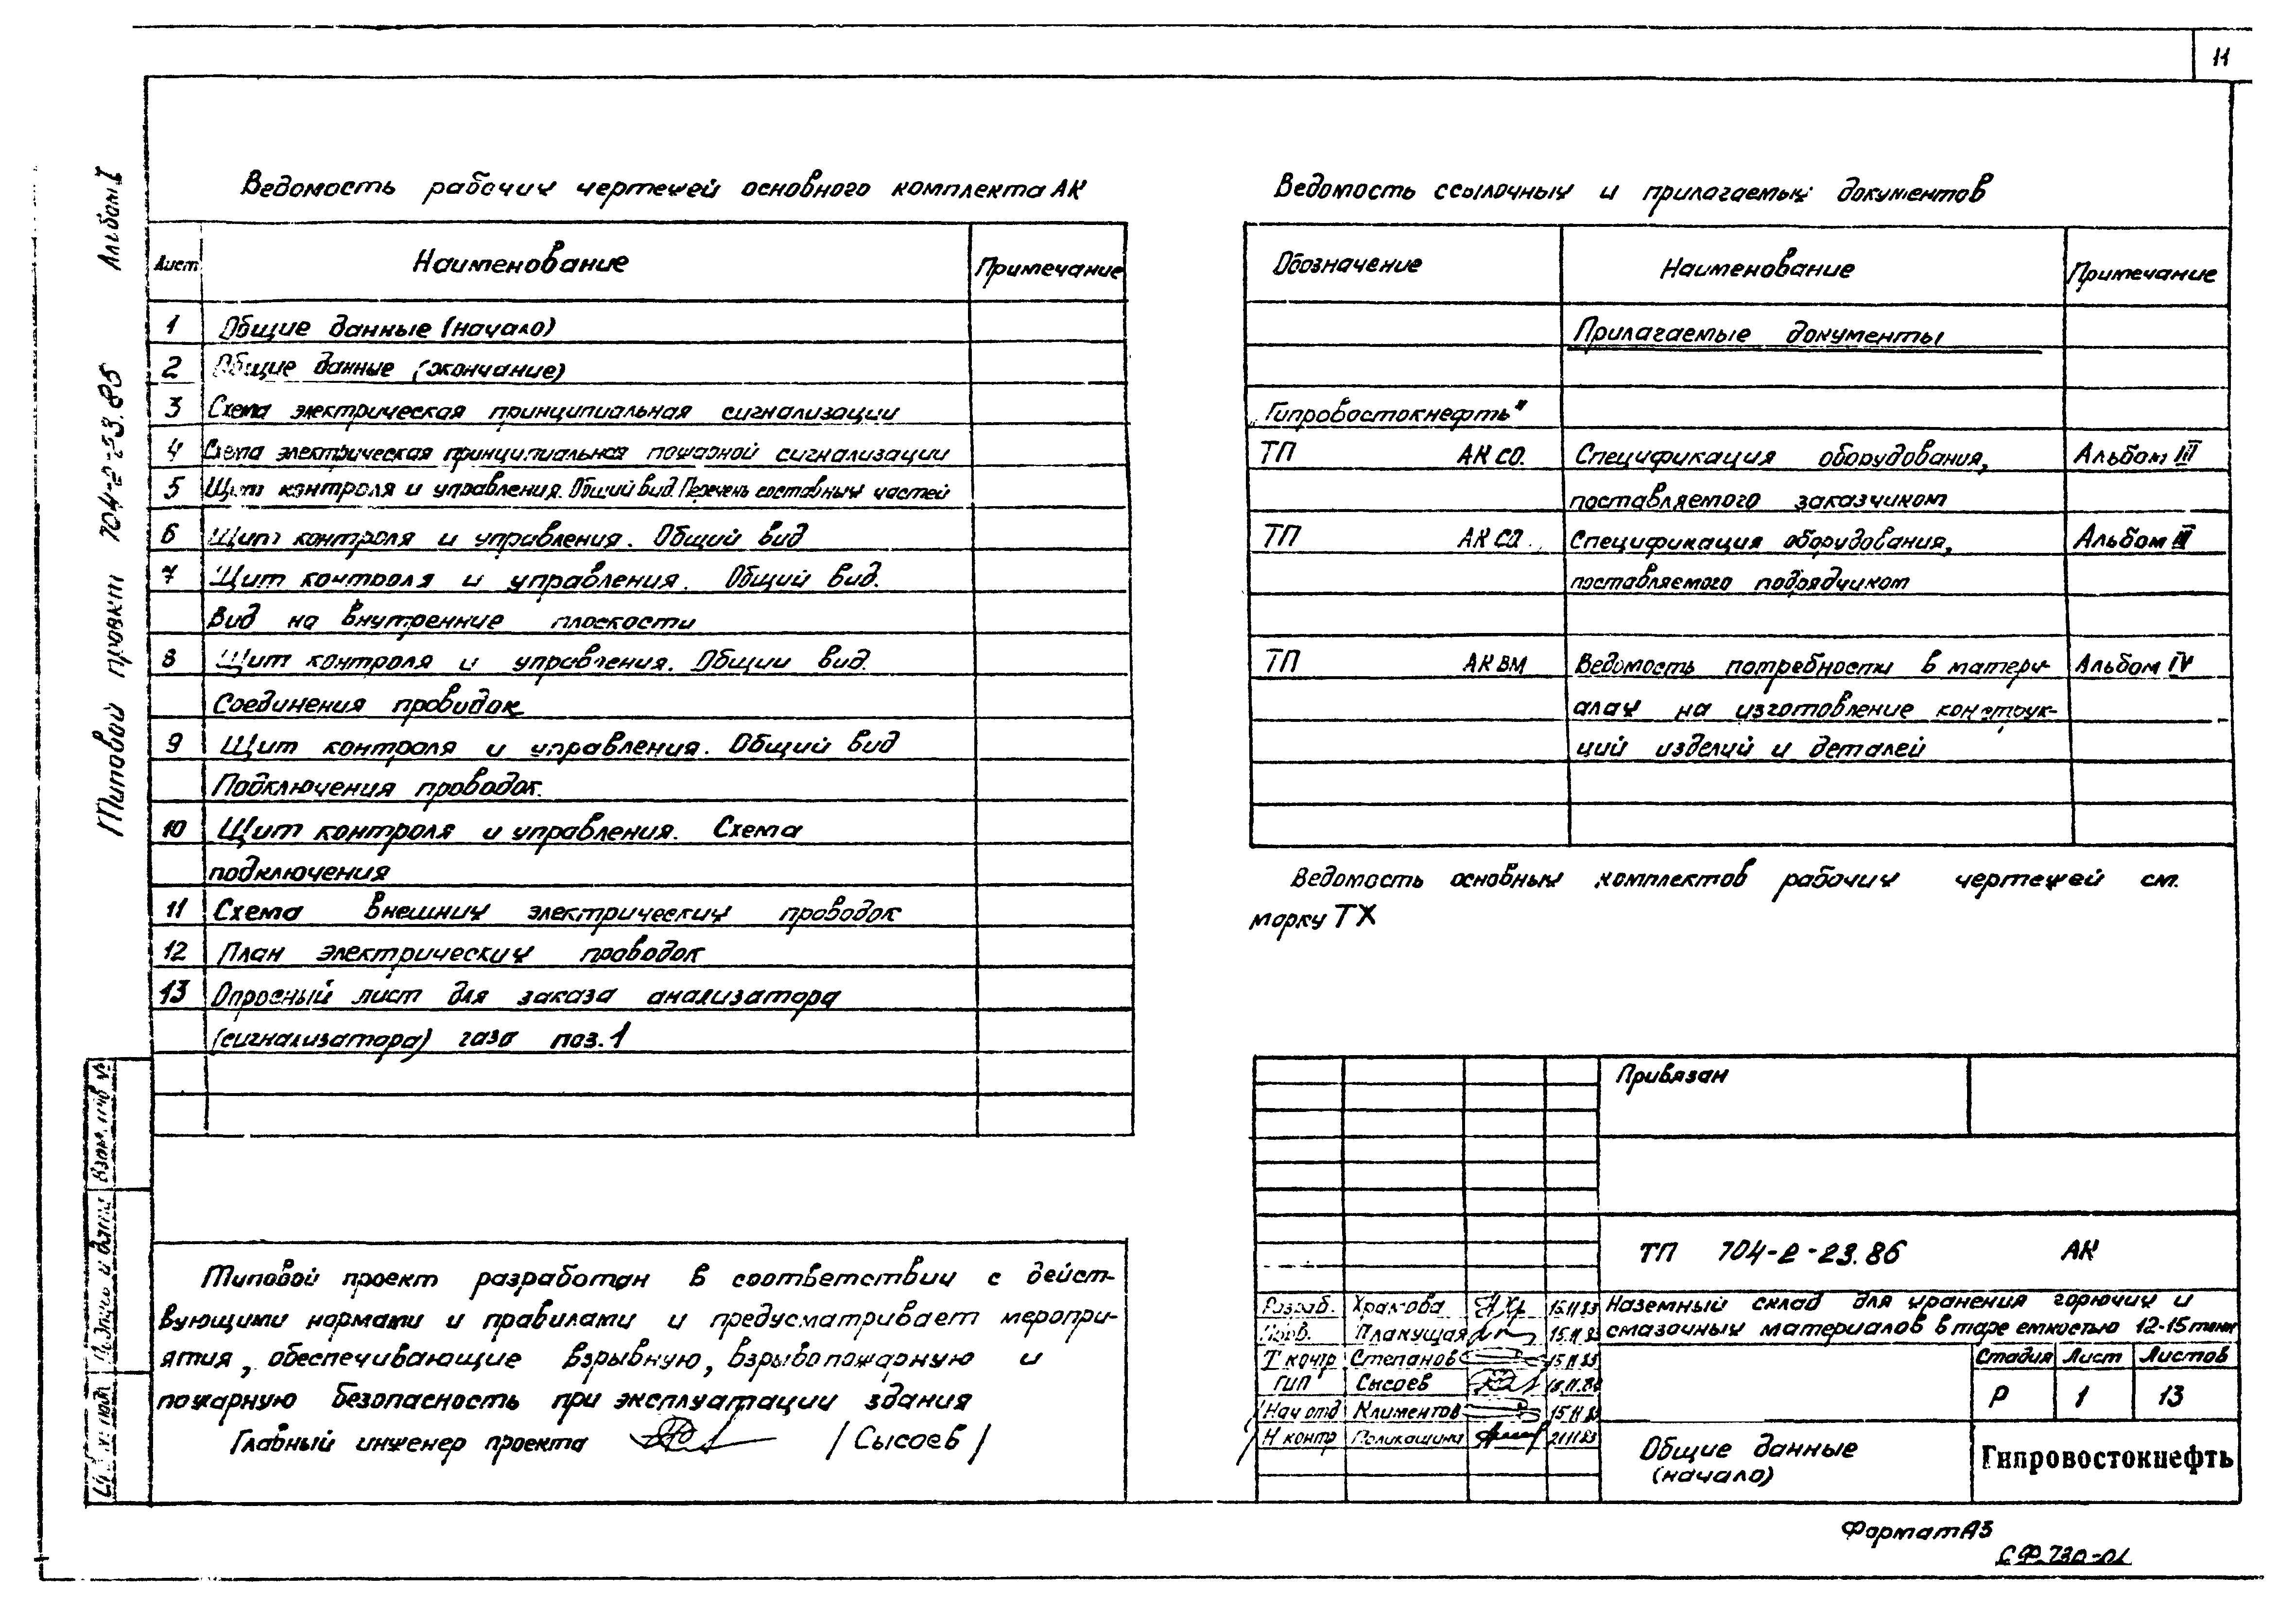 11
Альбом I
Типовой проект 704-2-23.86
Ведомость рабочих чертежей основного комплекта АК
Лист Наименование Примечание
1 Общие данные (начало)
2 Общие данные (окончание)
3 Схема электрическая принципиальная сигнализации
4 Схема электрическая принципиальная пожарной сигнализации
5 Щит контроля и управления. Общий вид. Перечень составных частей
6 Щит контроля и управления. Общий вид
7 Щит контроля и управления. Общий вид.
Вид на внутренние плоскости
8 Щит контроля и управления. Общий вид.
Соединения проводок
9 Щит контроля и управления. Общий вид
Подключения проводок.
10 Щит контроля и управления. Схема
подключения
11 Схема внешних электрических проводок
12 План электрических проводок
13 Опросный лист для заказа анализатора
(сигнализатора) газа поз. 1
Ведомость ссылочных и прилагаемых документов
Обозначение Наименование Примечание
Прилагаемые документы
„Гипровостокнефть"
ТП АК СО. Спецификация оборудования, Альбом III
поставляемого заказчиком
ТП АК СО. Спецификация оборудования, Альбом
поставляемого подрядчиком
ТП АК ВМ Ведомость потребности в матери- Альбом IV
алах на изготовление конструк-
ций изделий и деталей
Ведомость основных комплектов рабочих чертежей см.
марку ТХ
Типовой проект разработан в соответствии с дейст-
вующими нормами и правилами и предусматривает меропри-
ятия, обеспечивающие взрывную, взрывопожарную и
пожарную безопасность при эксплуатации здания
Главный инженер проекта /Сысоев/
Взам. инв №
Подпись и дата
Инв № подл
Привязан
ТП 704-2-23.86 АК
Разраб. Храмова 15.11.83
Пров. Плакущая 15.11.83
Т контр Степанов 15.11.83
ГИП Сысоев
Нач отд Климентов 15.11.83
Н контр Поликашина 21.11.83
Наземный склад для хранения горючих и
смазочных материалов в таре емкостью 12-15 тонн
Стадия Лист Листов
Р 1 13
Общие данные
(начало)
Гипровостокнефть
Формат А3
СФ 730-01